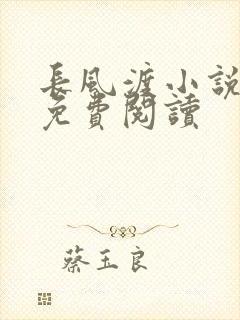 長風渡小說
免費閱讀
蔡玉良